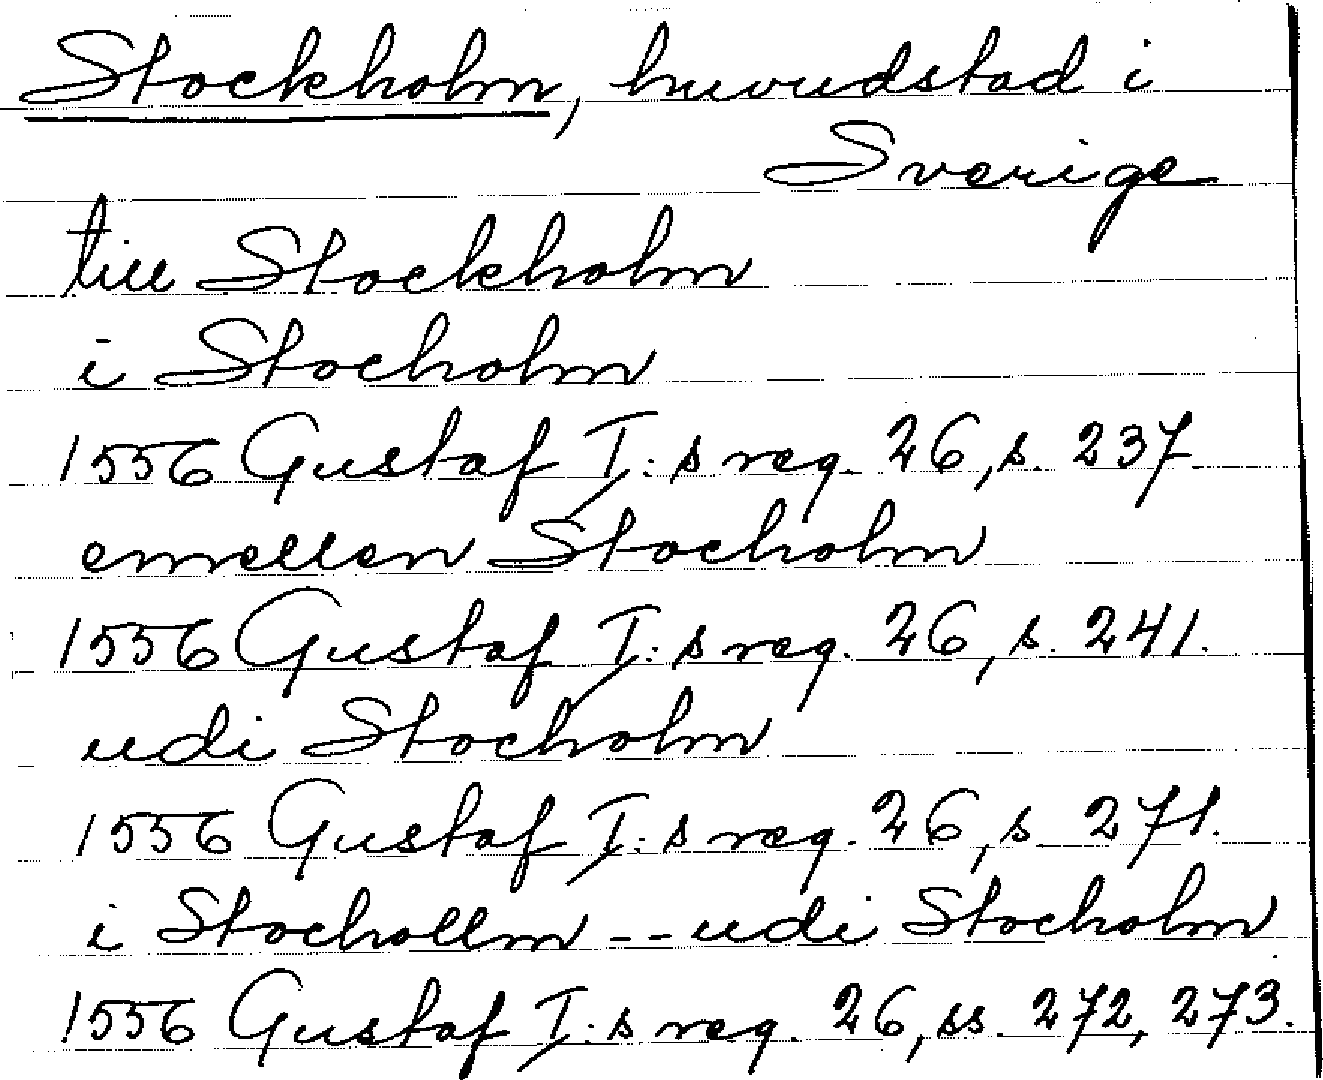 Stockholm, huvudstad i
Sverige
till Stockholm
i Stocholm
1556 Gustaf I:s reg. 26, s. 237
emellen Stocholm
1556 Gustaf I:s reg. 26, s. 241.
udi Stocholm
1556 Gustaf I:s reg. 26, s. 271.
i Stochollm -- udi Stocholm
1556 Gustaf I:s reg. 26, ss. 272, 273.